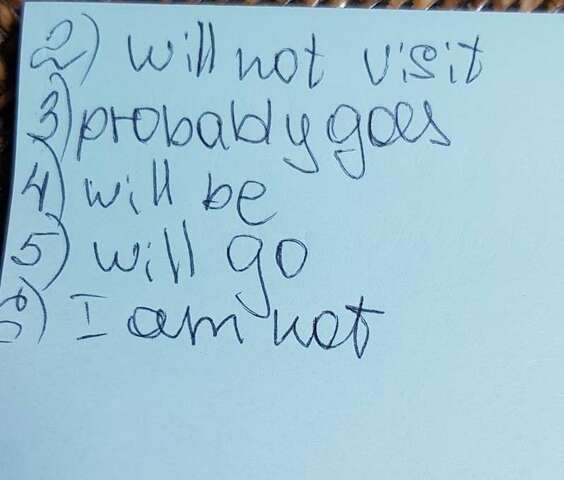 2) will not visit
3) probably goes
4) will be
5) will go
6) I am not